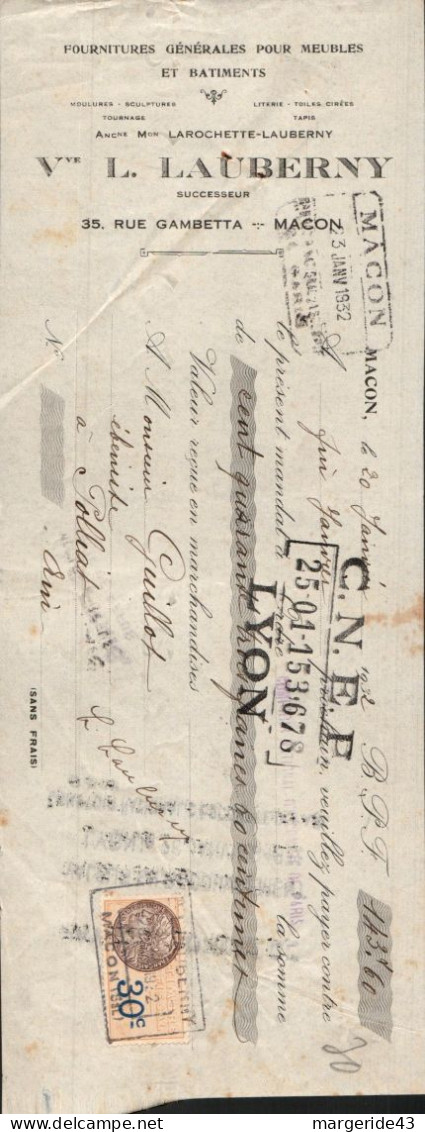 FOURNITURES GÉNÉRALES POUR MEUBLES
ET BATIMENTS
MOULURES - SCULPTURES
TOURNAGE
LITERIE - TOILES CIRÉES
TAPIS
ANCNE MON LAROCHETTE-LAUBERNY
VVE L. LAUBERNY
SUCCESSEUR
35, RUE GAMBETTA - MACON
MACON
23 JANV 1932
MACON, le 20 Janvier 1932 B.P.F. 143,60
A fin Janvier prochain, veuillez payer contre
le présent mandat à ordre la somme
de cent quarante trois francs 60 centimes
Valeur reçue en marchandises
A Monsieur Guillot
ébéniste
à Polliat
Ain
No
(SANS FRAIS)
C.N.E.P.
25-01-153.678
LYON
L. Lauberny
30c
MACON
70
www.delcampe.net
margeride43